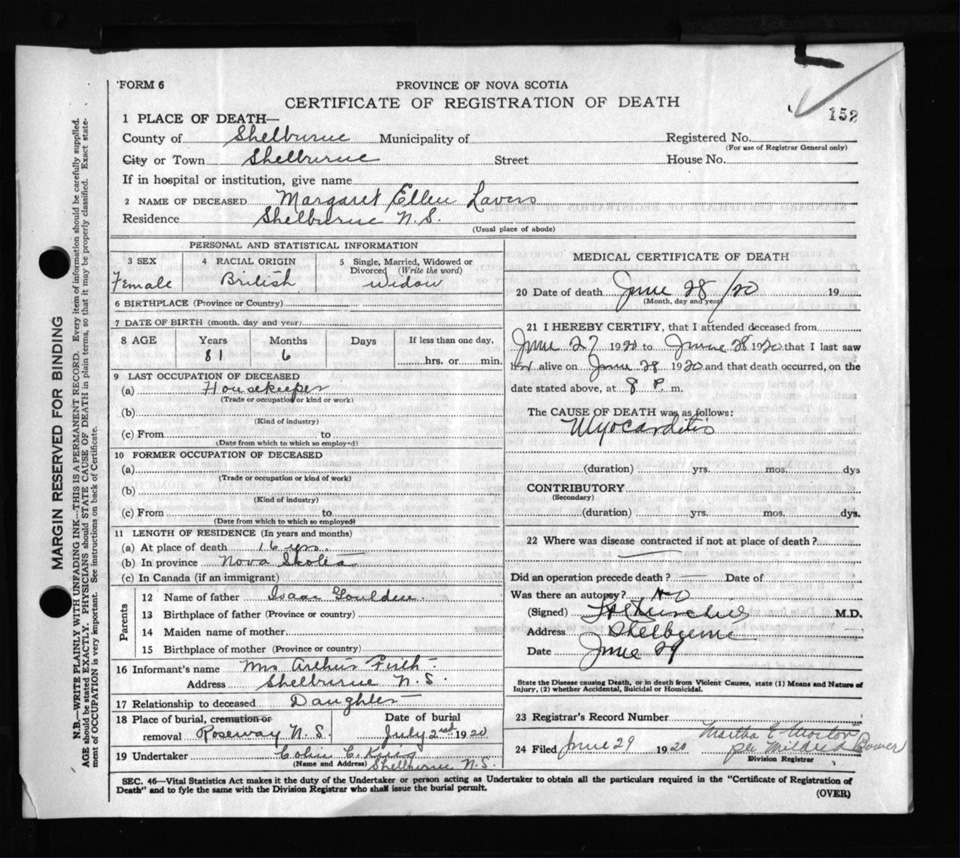 FORM 6
PROVINCE OF NOVA SCOTIA
CERTIFICATE OF REGISTRATION OF DEATH
152
1 PLACE OF DEATH—
County of Shelburne Municipality of Registered No.
(For use of Registrar General only)
City or Town Shelburne Street House No.
If in hospital or institution, give name
2 NAME OF DECEASED Margaret Ellen Lavers
Residence Shelburne N.S.
(Usual place of abode)
PERSONAL AND STATISTICAL INFORMATION
3 SEX Female
4 RACIAL ORIGIN British
5 Single, Married, Widowed or Divorced (Write the word) Widow
6 BIRTHPLACE (Province or Country)
7 DATE OF BIRTH (month, day and year)
8 AGE Years Months Days If less than one day,
81 6 hrs. or min.
9 LAST OCCUPATION OF DECEASED
(a) Housekeeper
(Trade or occupation or kind or work)
(b)
(Kind of industry)
(c) From to
(Date from which to which so employed)
10 FORMER OCCUPATION OF DECEASED
(a)
(Trade or occupation or kind of work)
(b)
(Kind of industry)
(c) From to
(Date from which to which so employed)
11 LENGTH OF RESIDENCE (In years and months)
(a) At place of death 16 yrs.
(b) In province Nova Scotia
(c) In Canada (if an immigrant)
Parents
12 Name of father Isaac Goulden
13 Birthplace of father (Province or country)
14 Maiden name of mother
15 Birthplace of mother (Province or country)
16 Informant's name Mrs Arthur Firth
Address Shelburne N.S.
17 Relationship to deceased Daughter
18 Place of burial, cremation or Date of burial
removal Roseway N.S. July 2nd 1920
19 Undertaker Colin C.
(Name and Address) Shelburne N.S.
MEDICAL CERTIFICATE OF DEATH
20 Date of death June 28/20 19
(Month, day and year)
21 I HEREBY CERTIFY, that I attended deceased from
June 27 1920 to June 28 1920 that I last saw
her alive on June 28 1920 and that death occurred, on the
date stated above, at 8 P. m.
The CAUSE OF DEATH was as follows:
Myocarditis
(duration) yrs. mos. dys
CONTRIBUTORY
(Secondary)
(duration) yrs. mos. dys.
22 Where was disease contracted if not at place of death?
Did an operation precede death? — Date of
Was there an autopsy? No
(Signed) M.D.
Address Shelburne
Date June 29
State the Disease causing Death, or in death from Violent Causes, state (1) Means and Nature of
Injury, (2) whether Accidental, Suicidal or Homicidal.
23 Registrar's Record Number
24 Filed June 29 1920 Martha E Morton
per Mildred Bower
Division Registrar
SEC. 46—Vital Statistics Act makes it the duty of the Undertaker or person acting as Undertaker to obtain all the particulars required in the "Certificate of Registration of
Death" and to fyle the same with the Division Registrar who shall issue the burial permit.
(OVER)
MARGIN RESERVED FOR BINDING
N.B.—WRITE PLAINLY WITH UNFADING INK—THIS IS A PERMANENT RECORD. Every item of information should be carefully supplied.
AGE should be stated EXACTLY. PHYSICIANS should STATE CAUSE OF DEATH in plain terms, so that it may be properly classified. Exact state-
ment of OCCUPATION is very important. See instructions on back of Certificate.